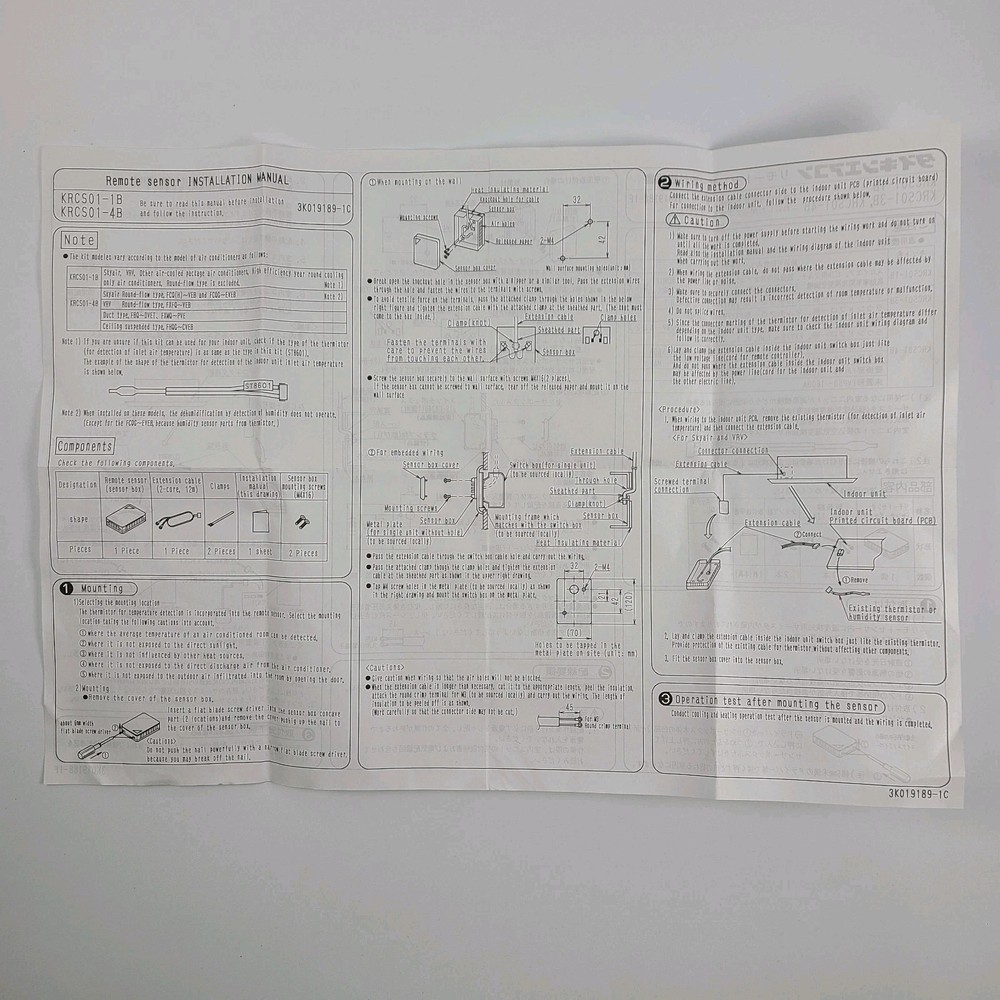 Remote sensor INSTALLATION MANUAL
KRCS01-1B
KRCS01-4B
Be sure to read this manual before installation
and follow the instruction.
3K019189-1C
Note
● The kit models vary according to the model of air conditioners as follows:
KRCS01-1B
Skyair, VRV, Other air-cooled package air conditioners, High efficiency year round cooling
only air conditioners. Round-flow type is excluded. Note 1)
KRCS01-4B
Skyair Round-flow type, FCQ(H)-VEB and FCQG-EVEB Note 2)
VRV Round-flow type, FXFQ-VEB
Duct type, FBQ-OVET, FXMQ-PVE
Ceiling suspended type, FHQG-CVEB
Note 1) If you are unsure if this kit can be used for your indoor unit, check if the type of the thermistor
(for detection of inlet air temperature) is as same as the type in this kit (ST8601).
The example of the shape of the thermistor for detection of the indoor unit inlet air temperature
is shown below.
ST8601
Note 2) When installed on these models, the dehumidification by detection of humidity does not operate.
(Except for the FCQG-EVEB, because humidity sensor parts from thermistor.)
Components
Check the following components.
Designation
Remote sensor
(sensor box)
Extension cable
(2-core, 12m)
Clamps
Installation
manual
(this drawing)
Sensor box
mounting screws
(M4X16)
shape
Pieces
1 Piece
1 Piece
2 Pieces
1 sheet
2 Pieces
1 Mounting
1)Selecting the mounting location
The thermistor for temperature detection is incorporated into the remote sensor. Select the mounting
location taking the following cautions into account.
① Where the average temperature of an air conditioned room can be detected.
② Where it is not exposed to the direct sunlight.
③ Where it is not influenced by other heat sources.
④ Where it is not exposed to the direct discharge air from the air conditioner.
⑤ Where it is not exposed to the outdoor air infiltrated into the room by opening the door.
2)Mounting
●Remove the cover of the sensor box.
about 6mm width
flat blade screw driver
Insert a flat blade screw driver into the sensor box concave
part (2 locations) and remove the cover pushing up the nail to
the cover of the sensor box.
<Cautions>
Do not push the nail powerfully with a narrow flat blade screw driver,
because you may break off the nail.
①When mounting on the wall
Heat insulating material
Knockout hole for cable
Sensor box
Air holes
Mounting screws
Release paper
Sensor box cover
32
2-M4
42
Wall surface mounting holes(unit: mm)
● Break open the knockout hole in the sensor box with a nipper or a similar tool. Pass the extension wires
through the hole and fasten the wires to the terminal with screws.
● To avoid tensile force on the terminals, pass the attached clamp through the holes shown in the below
right figure and tighten the extension cable with the attached clamp at the sheathed part. (The knot must
come to the box inside.)
Extension cable
Clamp(knot)
Clamp holes
Sheathed part
Fasten the terminals with
care to prevent the wires
from touching each other.
Sensor box
● Screw the sensor box securely to the wall surface with screws M4X16(2 places).
If the sensor box cannot be screwed to wall surface, tear off the released paper and mount it on the
wall surface
②For embedded wiring
Extension cable
Sensor box cover
Switch box(for single unit)
(to be sourced locally)
Through hole
Sheathed part
Clamp(knot)
Mounting screws
Sensor box
Mounting frame which
matches with the switch box
(to be sourced locally)
Sensor box
Metal plate
(for single unit without box)
(to be sourced locally)
Heat insulating material
● Pass the extension cable through the switch box cable hole and carry out the wiring.
● Pass the attached clamp though the clamp holes and tighten the extension
cable at the sheathed part as shown in the upper right drawing.
● Tap M4 screw holes in the metal plate to be sourced locally as shown
in the right drawing and mount the switch box on the metal plate.
32
2-M4
(21)
42
(120)
(70)
Holes to be tapped in the
metal plate on site (unit: mm)
<Cautions>
● Give caution when wiring so that the air holes will not be blocked.
● When the extension cable is longer than necessary, cut it to the appropriate length, peel the insulation,
attach the round crimp terminal for M3 (to be sourced locally) and carry out the wiring. The length of
insulation to be peeled off is as shown.
(Work carefully so that the connector side may not be cut.)
45
For M3
Round crimp terminal
2 Wiring method
Connect the extension cable connector side to the indoor unit PCB (printed circuit board)
For connection to the indoor unit, follow the procedure shown below.
⚠ Caution
1) Make sure to turn off the power supply before starting the wiring work and do not turn on
until all the work is completed.
Read also the installation manual and the wiring diagram of the indoor unit
when carrying out the work.
2) When wiring the extension cable, do not pass where the extension cable may be affected by
the power line or noise.
3) Make sure to securely connect the connectors.
Defective connection may result in incorrect detection of room temperature or malfunction.
4) Do not splice wires.
5) Since the connector marking of the thermistor for detection of inlet air temperature differ
depending on the indoor unit type, make sure to check the indoor unit wiring diagram and
follow it correctly.
6) Lay and clamp the extension cable inside the indoor unit switch box just like
the low voltage line(cord for remote controller).
And do not pass where the extension cable inside the indoor unit switch box
may be affected by the power line(cord for the indoor unit and
the other electric line).
<Procedure>
1. When wiring to the indoor unit PCB, remove the existing thermistor (for detection of inlet air
temperature) and connect the extension cable.
<For Skyair and VRV>
Connector connection
Extension cable
Screwed terminal
connection
Indoor unit
Indoor unit
Printed circuit board (PCB)
Extension cable
② Connect
① Remove
Existing thermistor or
humidity sensor
2. Lay and clamp the extension cable inside the indoor unit switch box just like the existing thermistor.
Provide protection of the existing cable for thermistor without affecting other components.
3. Fit the sensor box cover into the sensor box.
3 Operation test after mounting the sensor
Conduct cooling and heating operation test after the sensor is mounted and the wiring is completed.
3K019189-1C